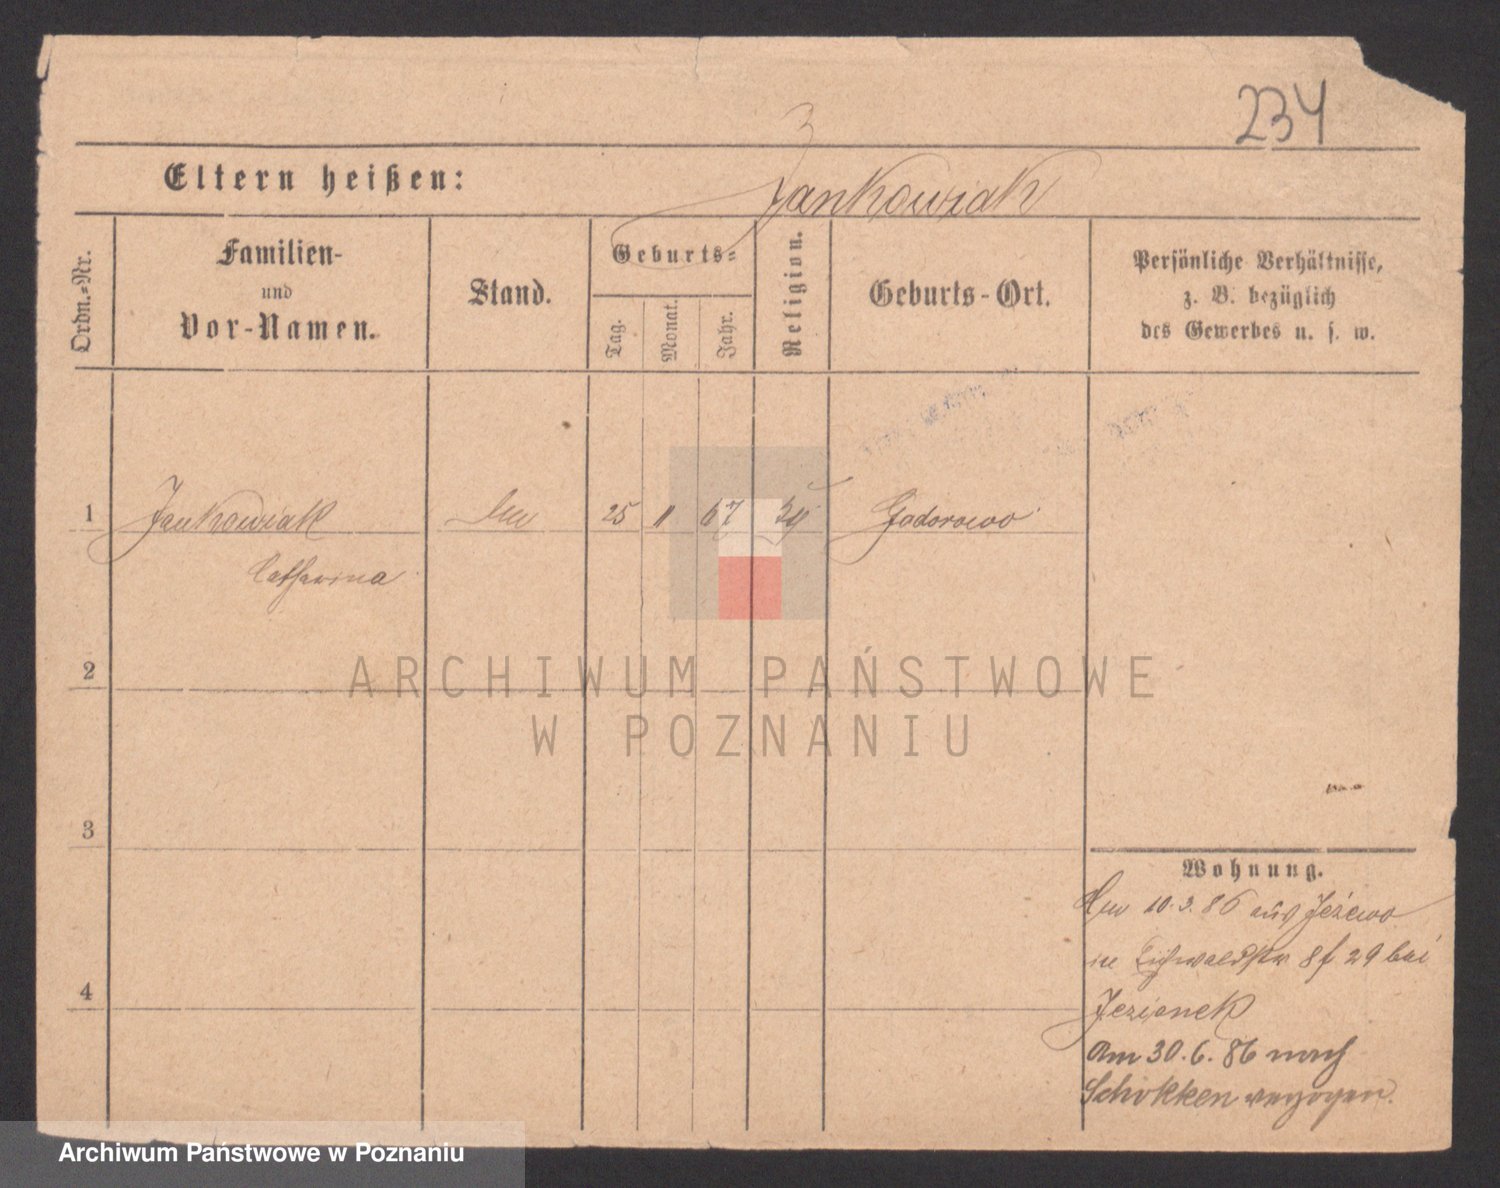 234
3
Eltern heißen:
Jankowiak
Ordn.-Nr.
Familien-
und
Vor-Namen.
Stand.
Geburts-
Tag.
Monat.
Jahr.
Religion.
Geburts-Ort.
Persönliche Verhältnisse,
z. B. bezüglich
des Gewerbes u. s. w.
1 Jankowiak 25 11 67 Godorowo
Catharina
2
3
4
Wohnung.
10.3.86 aus Jeżewo
in Eichwaldstr 8 f 29 bei
Jezionek
Am 30.6.86 nach
Schokken verzogen.
ARCHIWUM PAŃSTWOWE
W POZNANIU
Archiwum Państwowe w Poznaniu